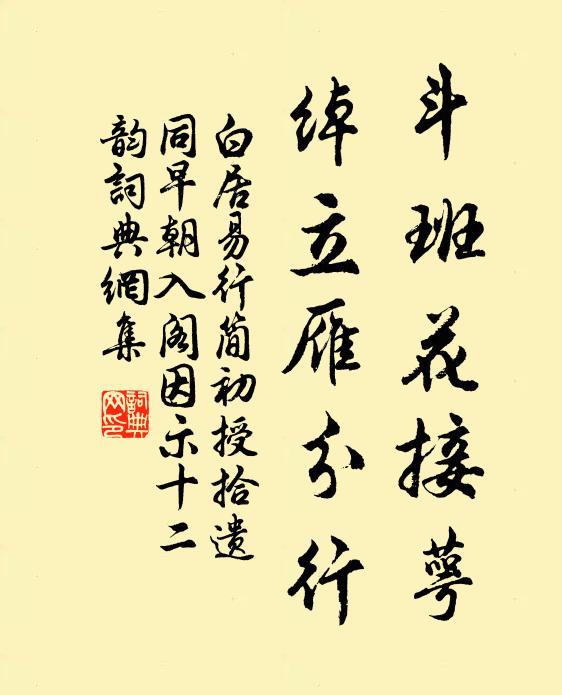 斗班花接萼
绰立雁分行
白居易行简初授拾遗
同早朝入阁因示十二
韵詞典網集
詞典
网印